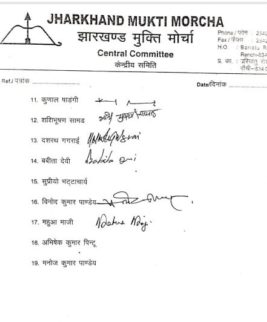 JHARKHAND MUKTI MORCHA
झारखण्ड मुक्ति मोर्चा
Central Committee
केन्द्रीय समिति
Phone / फोन : 2342
Fax / फैक्स : 2342
H.O. :
Ranchi-8340
Ref./ पत्रांक
Date/दिनांक
11. कुणाल षाडंगी
12. शशिभूषण सामड
13. दशरथ गगराई
14. बबीता देवी Babita Devi
15. सुप्रीयो भट्टाचार्य
16. बिनोद कुमार पाण्डेय
17. महुआ माजी
18. अभिषेक कुमार पिन्टू
19. मनोज कुमार पाण्डेय